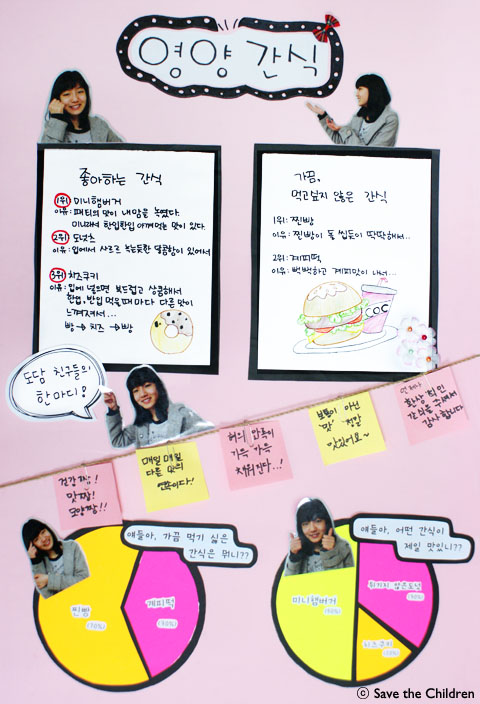 영양 간식
좋아하는 간식
1위 미니햄버거
이유: 패티의 맛이 내 맘을 녹였다.
미니라서 한입한입 아껴먹는 맛이 있다.
2위 도넛츠
이유: 입에서 사르르 녹는듯한 달콤함이 있어서
3위 치즈쿠키
이유: 입에 넣으면 부드럽고 상큼해서
한입, 반입 먹을때 마다 다른 맛이
느껴져서...
빵 → 치즈 → 빵
가끔,
먹고싶지 않은 간식
1위: 찐빵
이유: 찐빵이 돌 씹듯이 딱딱해서...
2위: 계피떡
이유: 뻑뻑하고 계피맛이 나서...
COC
도담 친구들의
한마디!
건강짱!
맛짱!
모양짱!!
매일매일
다른 맛의
간식이다!
혀의 만족이
가득 가득
채워진다..!
보통이 아닌
'맛' 정말
맛있어요~
항상
간식을 주셔서
감사합니다
얘들아, 가끔 먹기 싫은
간식은 뭐니??
찐빵
(70%)
계피떡
(30%)
얘들아, 어떤 간식이
제일 맛있니??
미니햄버거
(50%)
튀기지 않은도넛
치즈쿠키
© Save the Children